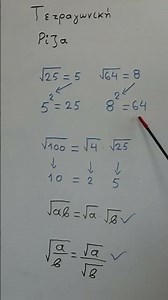 Τετραγωνική
Ρίζα
√25 = 5 √64 = 8
5² = 25 8² = 64
√100 = √4 · √25
10 = 2 5
√aβ = √a · √β ✓
√(a/β) = √a/√β ✓